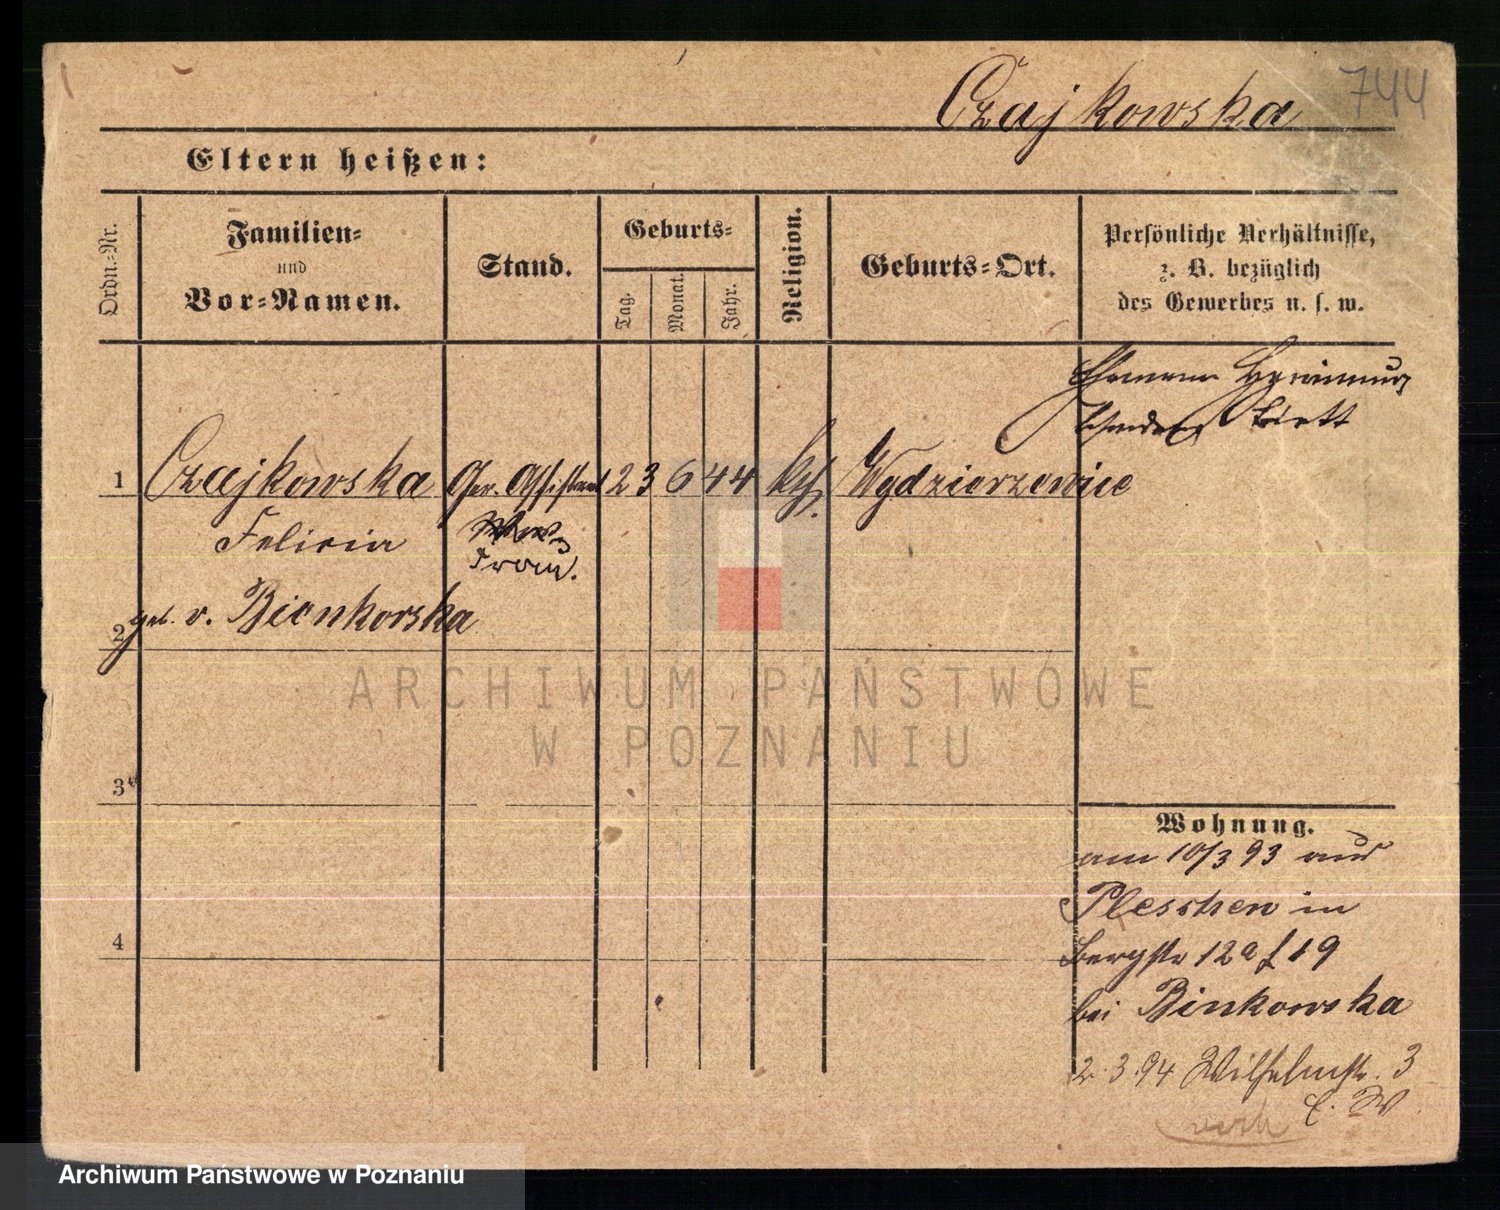 Czajkowska 744
Eltern heißen:
Ordn.-Nr.
Familien-
und
Vor-Namen.
Stand.
Geburts-
Tag.
Monat.
Jahr.
Religion.
Geburts-Ort.
Persönliche Verhältnisse,
z. B. bezüglich
des Gewerbes u. s. w.
Ehemann
1 Czajkowska Ger. Assistent 23 6 44 kth. Wydzierzewice
Felicia
Frau.
2 geb. v. Bienkowska
3
4
ARCHIWUM PAŃSTWOWE
W POZNANIU
Wohnung.
am 10/3 93 aus
Pleschen in
Bergstr 12a f 19
bei Binkowska
2.3.94 Wilhelmstr. 3
Archiwum Państwowe w Poznaniu